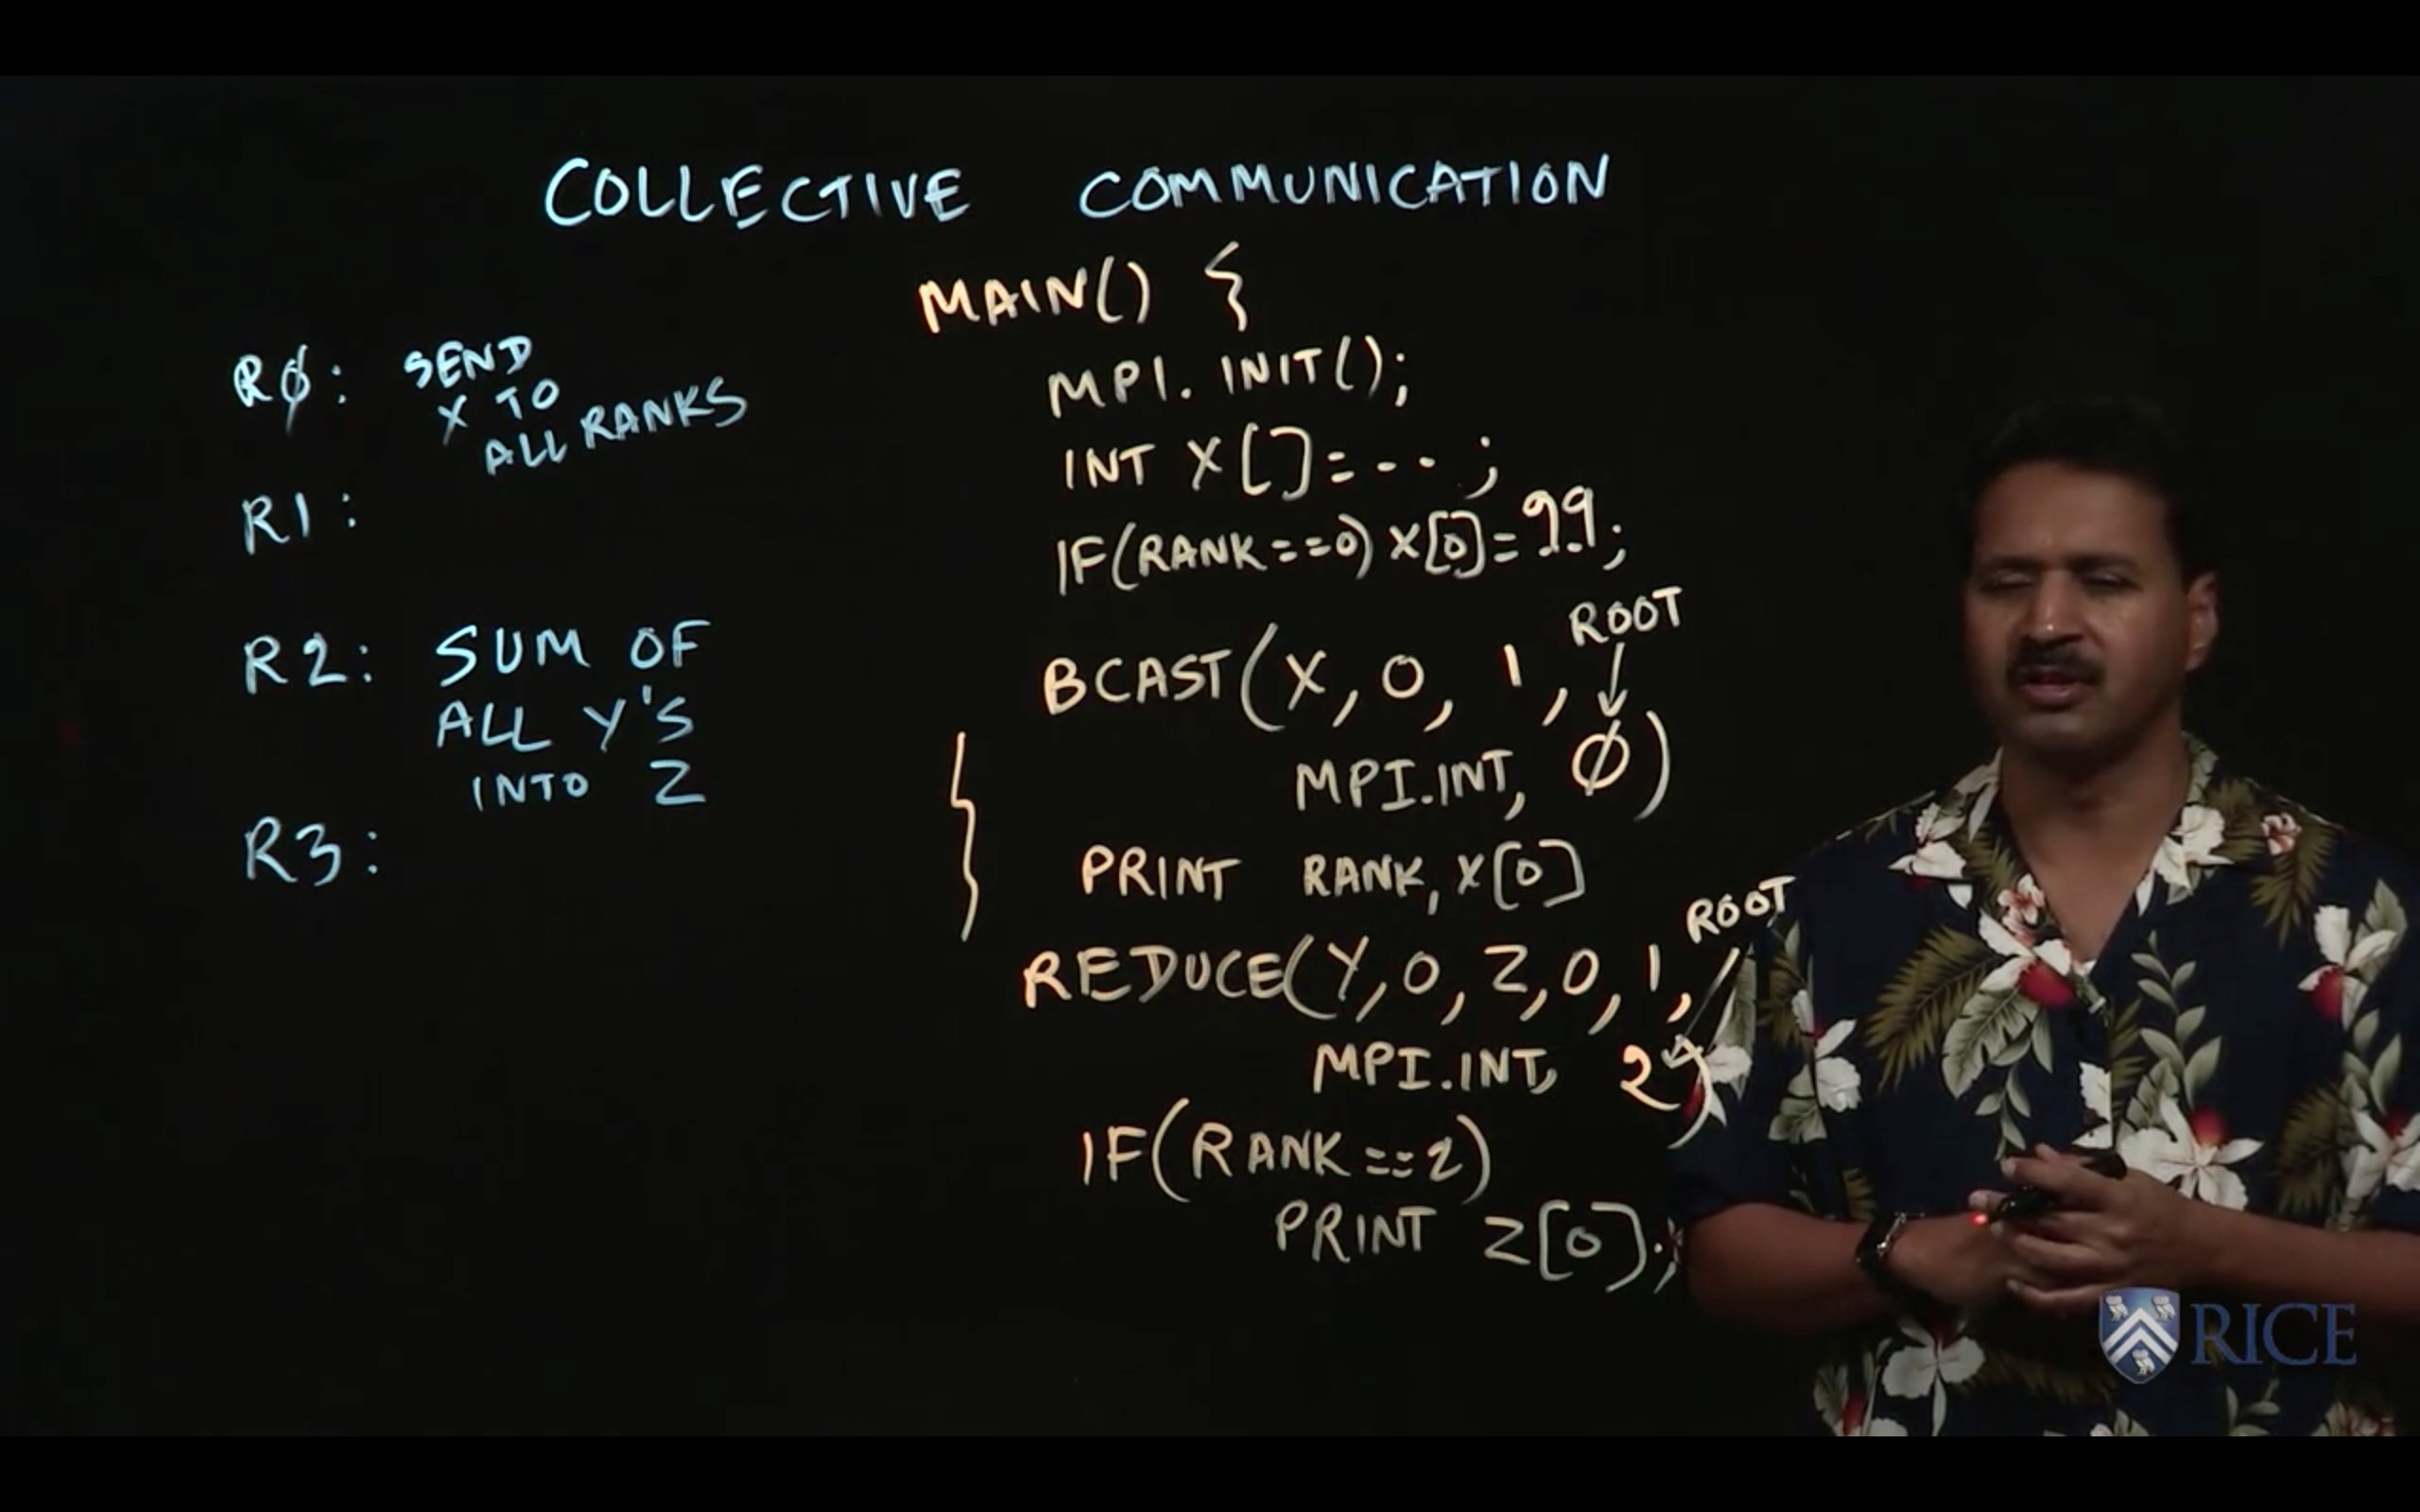 COLLECTIVE COMMUNICATION
RØ: SEND
X TO
ALL RANKS
R1:
R2: SUM OF
ALL Y'S
INTO Z
R3:
MAIN() {
MPI. INIT();
INT X[]=--;
IF(RANK==0) X[0]=99;
ROOT
BCAST(X, 0, 1,
MPI.INT, Ø)
PRINT RANK, X[0]
ROOT
REDUCE(Y,0,Z,0,1,
MPI.INT, 2)
IF(RANK==2)
PRINT Z[0];
RICE